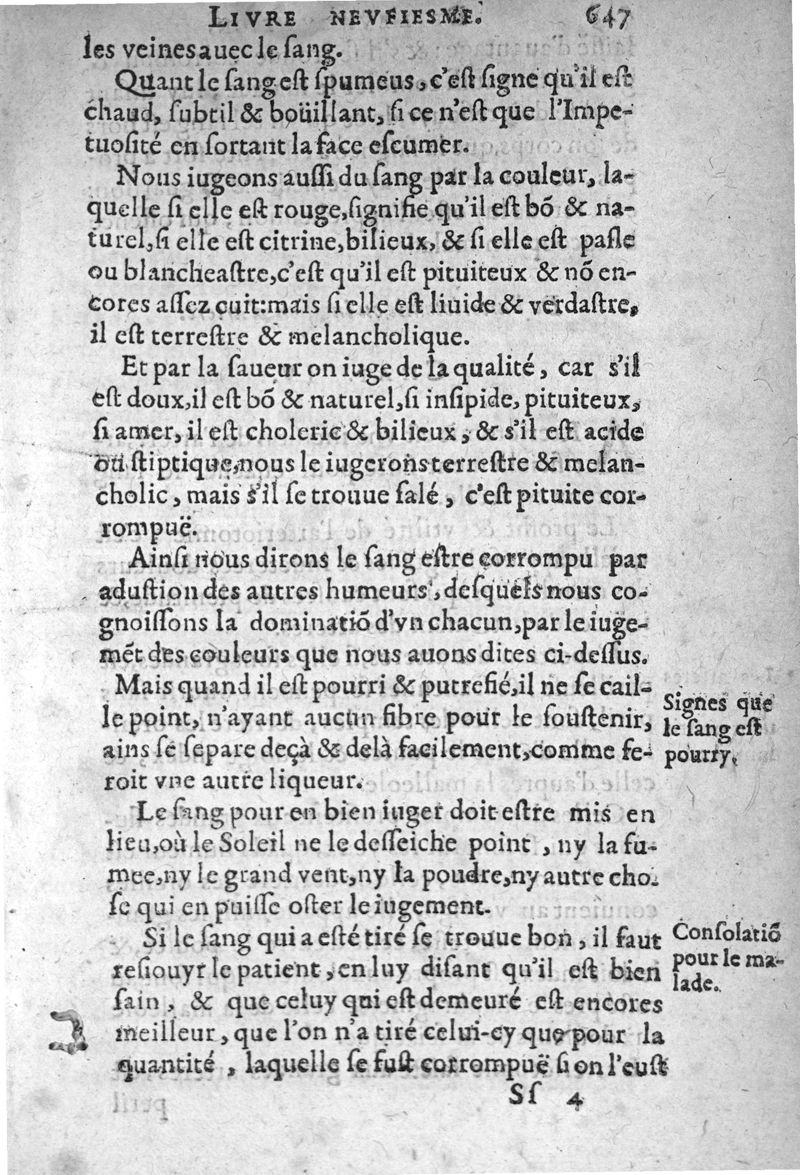 LIVRE NEVFIESME. 647
les veines auec le ſang.
Quant le ſang eſt ſpumeus, c'eſt ſigne qu'il eſt
chaud, ſubtil & boüillant, ſi ce n'eſt que l'Impe-
tuoſité en ſortant la face eſcumer.
Nous iugeons auſſi du ſang par la couleur, la-
quelle ſi elle eſt rouge, ſignifie qu'il eſt bõ & na-
turel, ſi elle eſt citrine, bilieux, & ſi elle eſt paſle
ou blancheaſtre, c'eſt qu'il eſt pituiteux & nõ en-
cores aſſez cuit: mais ſi elle eſt liuide & verdaſtre,
il eſt terreſtre & melancholique.
Et par la ſaueur on iuge de la qualité, car s'il
eſt doux, il eſt bõ & naturel, ſi inſipide, pituiteux,
ſi amer, il eſt choleric & bilieux, & s'il eſt acide
ou ſtiptique, nous le iugerons terreſtre & melan-
cholic, mais s'il ſe trouue ſalé, c'eſt pituite cor-
rompuë.
Ainſi nous dirons le ſang eſtre corrompu par
aduſtion des autres humeurs, deſquels nous co-
gnoiſſons la dominatiõ d'vn chacun, par le iuge-
mẽt des couleurs que nous auons dites ci-deſſus.
Mais quand il eſt pourri & putrefié, il ne ſe cail-
le point, n'ayant aucun fibre pour le ſouſtenir,
ains ſe ſepare deçà & delà facilement, comme fe-
roit vne autre liqueur.
Signes que
le ſang eſt
pourry.
Le ſang pour en bien iuger doit eſtre mis en
lieu, où le Soleil ne le deſſeiche point, ny la fu-
mee, ny le grand vent, ny la poudre, ny autre cho-
ſe qui en puiſſe oſter le iugement.
Si le ſang qui a eſté tiré ſe trouue bon, il faut
reſiouyr le patient, en luy diſant qu'il eſt bien
ſain, & que celuy qui eſt demeuré eſt encores
meilleur, que l'on n'a tiré celui-cy que pour la
quantité, laquelle ſe fuſt corrompuë ſi on l'euſt
Conſolatiõ
pour le ma-
lade.
Sſ 4